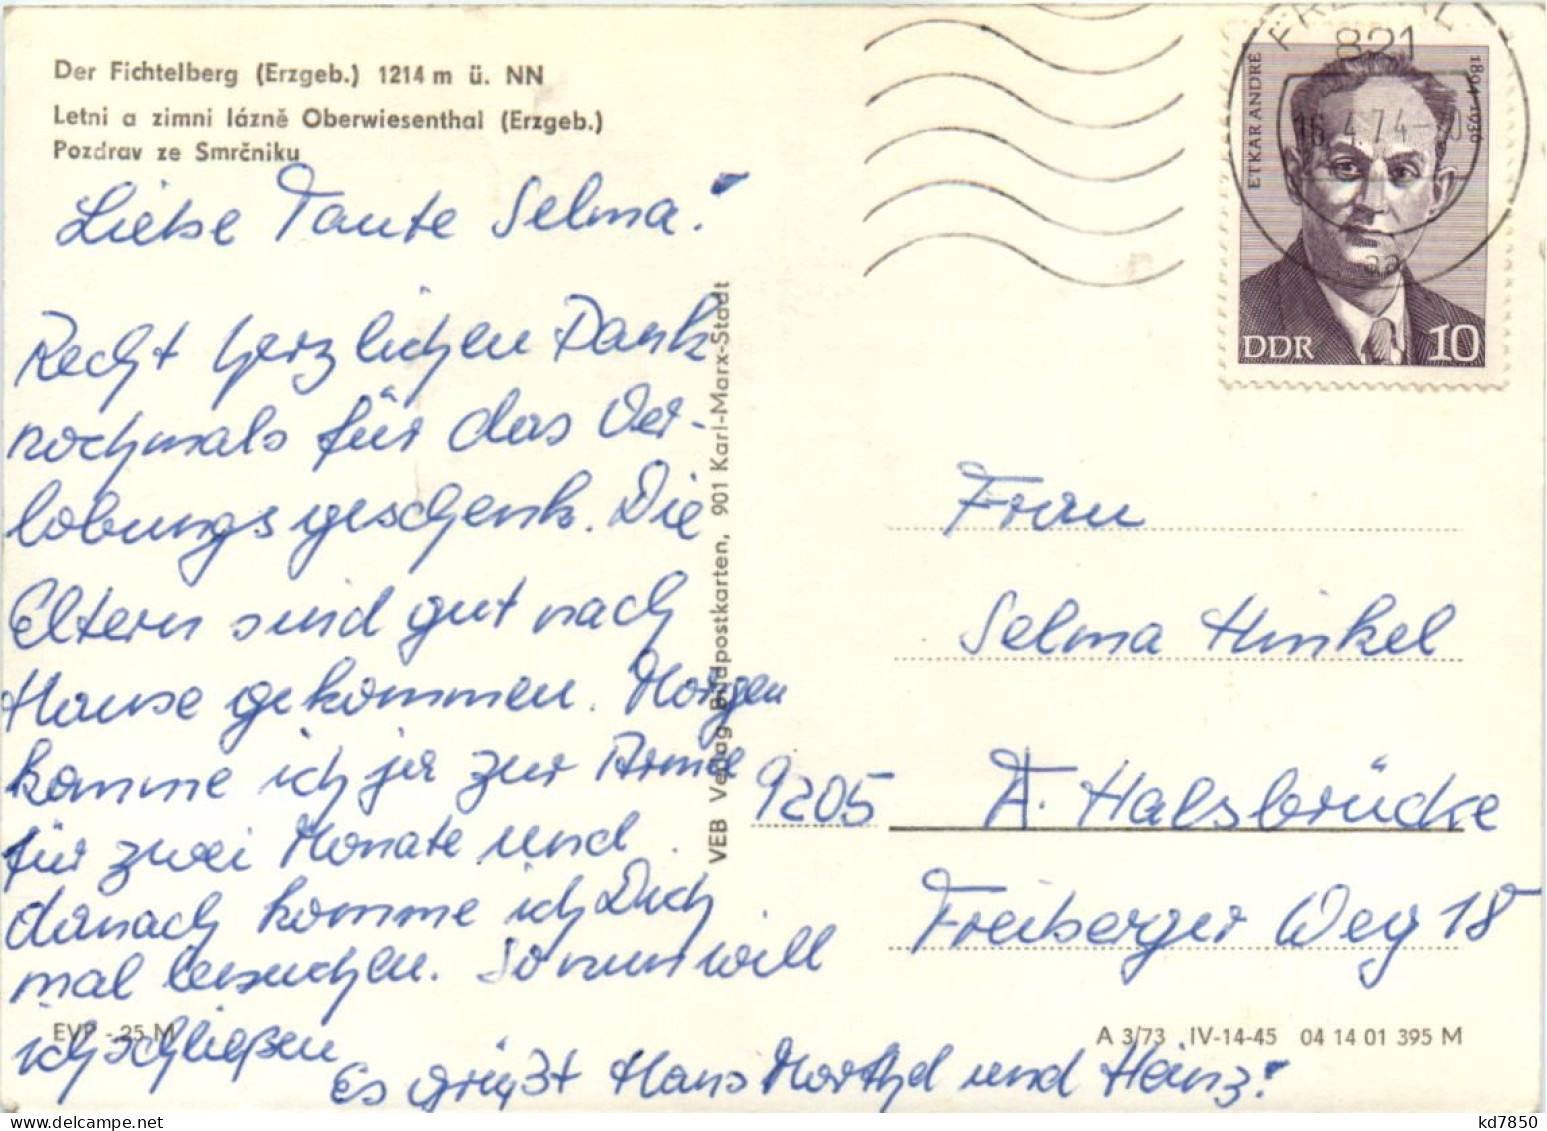 Der Fichtelberg (Erzgeb.) 1214 m ü. NN
Letni a zimni lázně Oberwiesenthal (Erzgeb.)
Pozdrav ze Smrčniku
Liebe Tante Selma!
Recht herzlichen Dank
nochmals für das Ver-
lobungsgeschenk. Die
Eltern sind gut nach
Hause gekommen. Morgen
komme ich ja zur Armee
für zwei Monate und
danach komme ich Dich
mal besuchen. So nun will
ich schließen
Es grüßt Hans und Heinz!
EVP -,25 M
VEB Verlag Bildpostkarten, 901 Karl-Marx-Stadt
821
16.4.74
aa
ETKAR ANDRÉ
1894-1936
DDR 10
Frau
Selma Hinkel
9205 A. Halsbrücke
Freiberger Weg 18
A 3/73 IV-14-45 04 14 01 395 M
kd7850